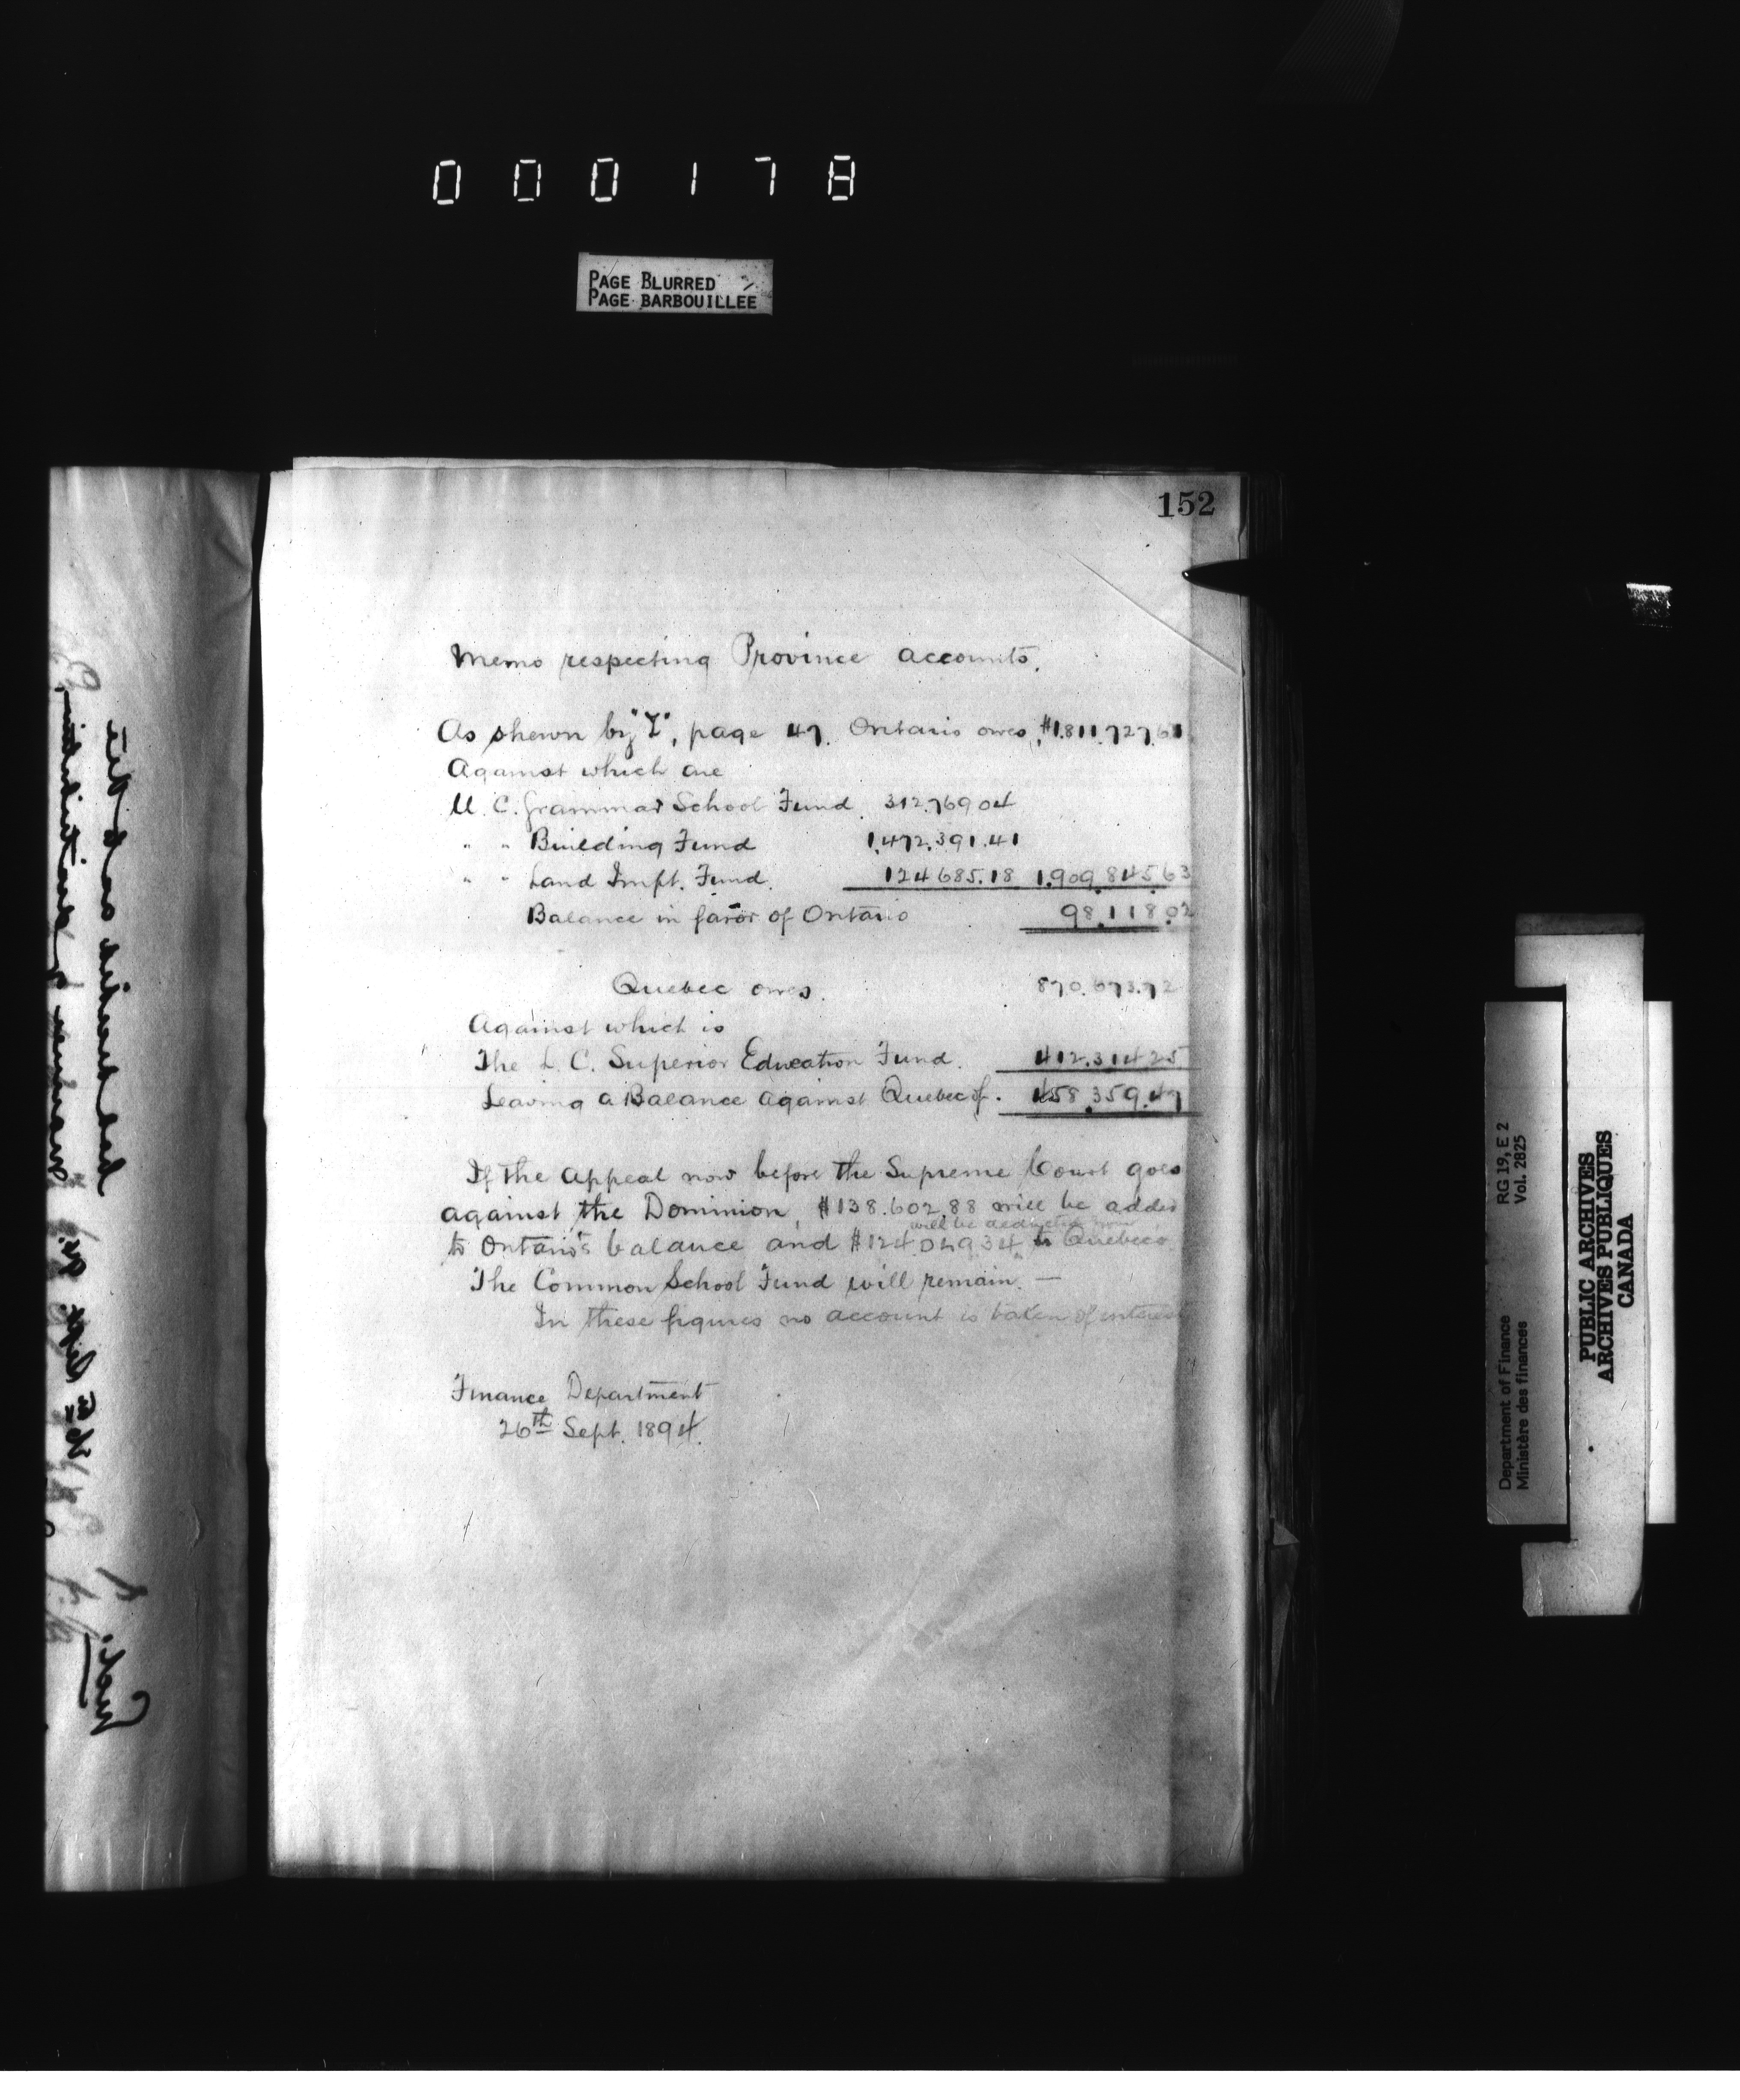 000178
PAGE BLURRED
PAGE BARBOUILLEE
152
Memo respecting Province accounts.
As shewn by "Y", page 47. Ontario owes, $1.811.727.61
Against which are
U. C. Grammar School Fund. 312.769 04
" " Building Fund 1.472.391.41
" " Land Impt. Fund. 124 685.18 1.909 845 63
Balance in favor of Ontario 98.118.02
Quebec owes. 870.673.72
Against which is
The L. C. Superior Education Fund. 412.314 25
Leaving a Balance against Quebec of. 458.359.47
If the appeal now before the Supreme Court goes
against the Dominion, $138.602.88 will be added
will be deducted from
to Ontario's balance and $124.049 34 to Quebecs.
The Common School Fund will remain. —
In these figures no account is taken of interest
Finance Department
26th Sept. 1894.
RG 19, E 2
Vol. 2825
Department of Finance
Ministère des finances
PUBLIC ARCHIVES
ARCHIVES PUBLIQUES
CANADA